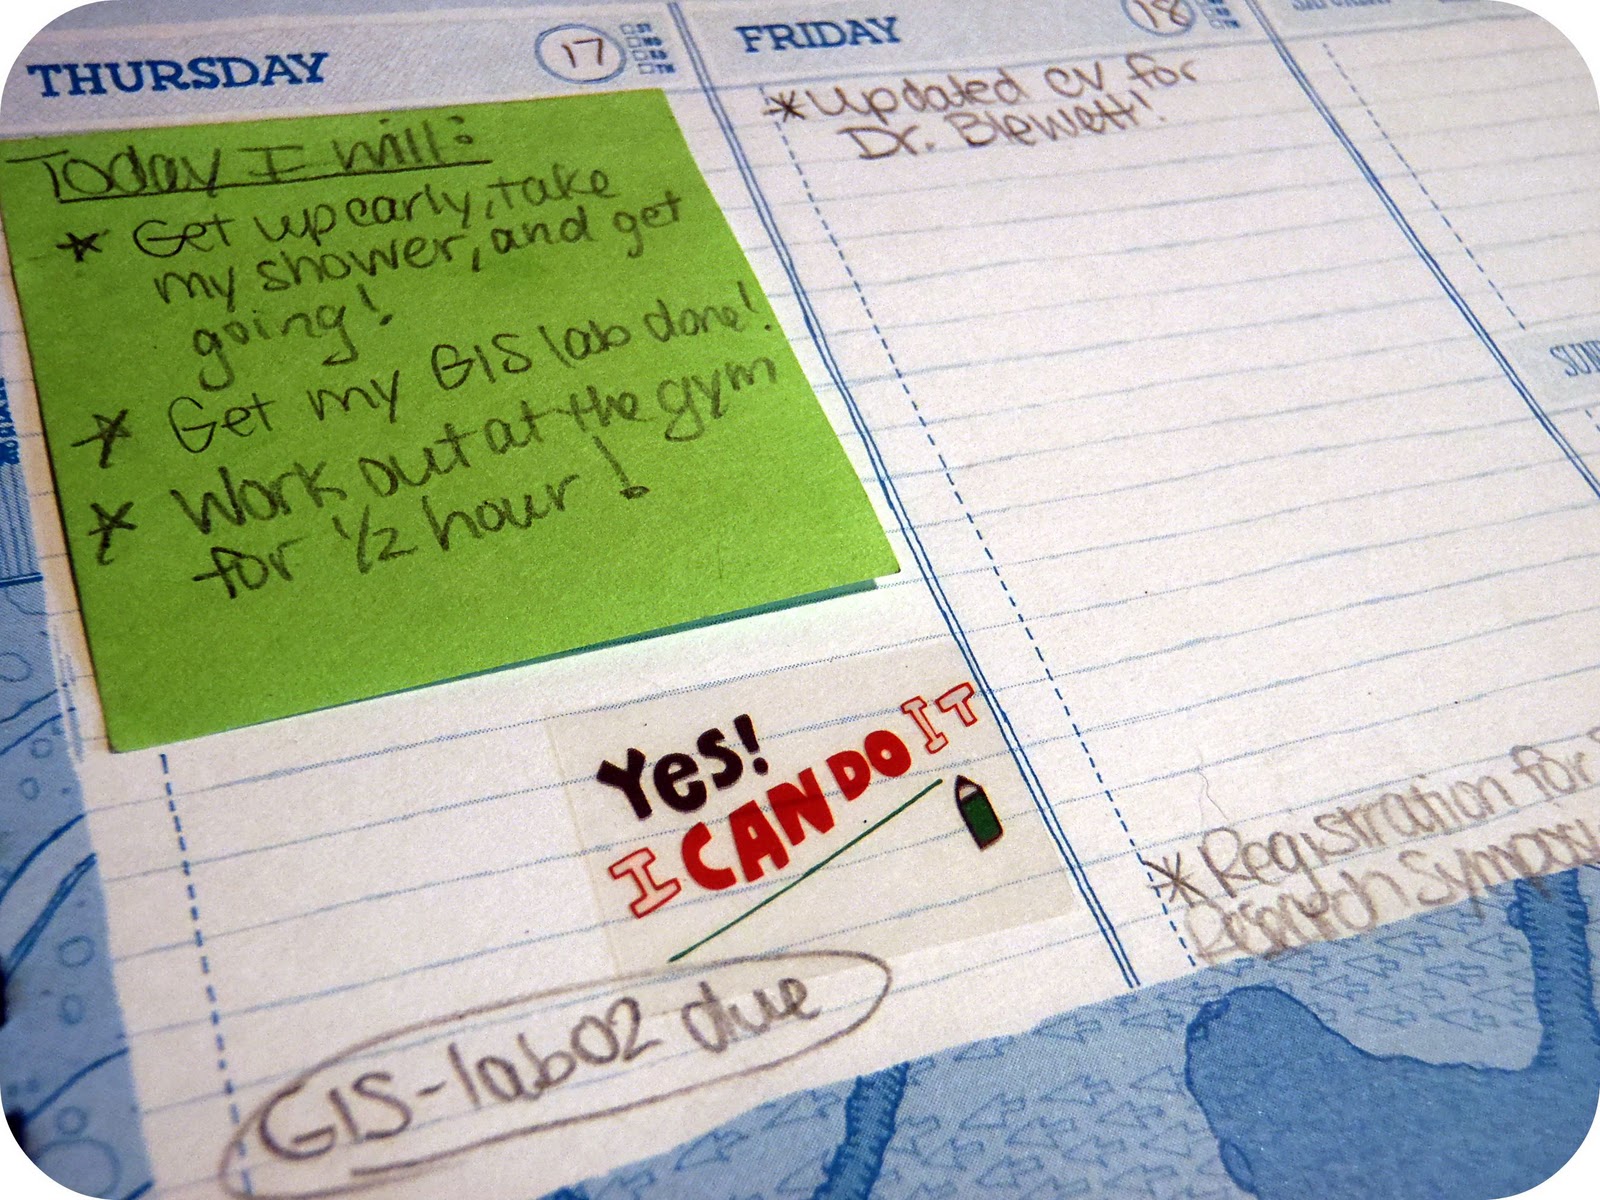 THURSDAY 17
Today I will:
* Get up early, take
my shower, and get
going!
* Get my GIS lab done!
* Work out at the gym
for 1/2 hour!
Yes!
I CAN DO IT
GIS-lab02 due
FRIDAY 18
*Updated CV for
Dr. Blewett!
*Registration for
Research